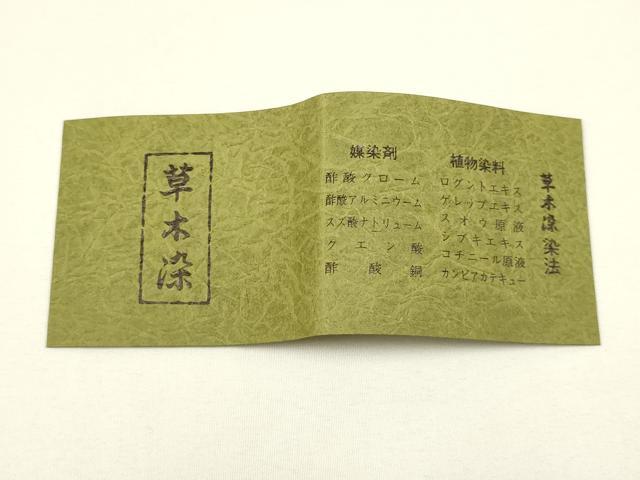 草木染染法
植物染料
ログントエキス
ゲレップエキス
スオウ原液
シブキエキス
コチニール原液
カンビアカテキュー
媒染剤
酢酸クローム
酢酸アルミニウーム
スズ酸ナトリューム
クエン酸
酢酸銅
草木染